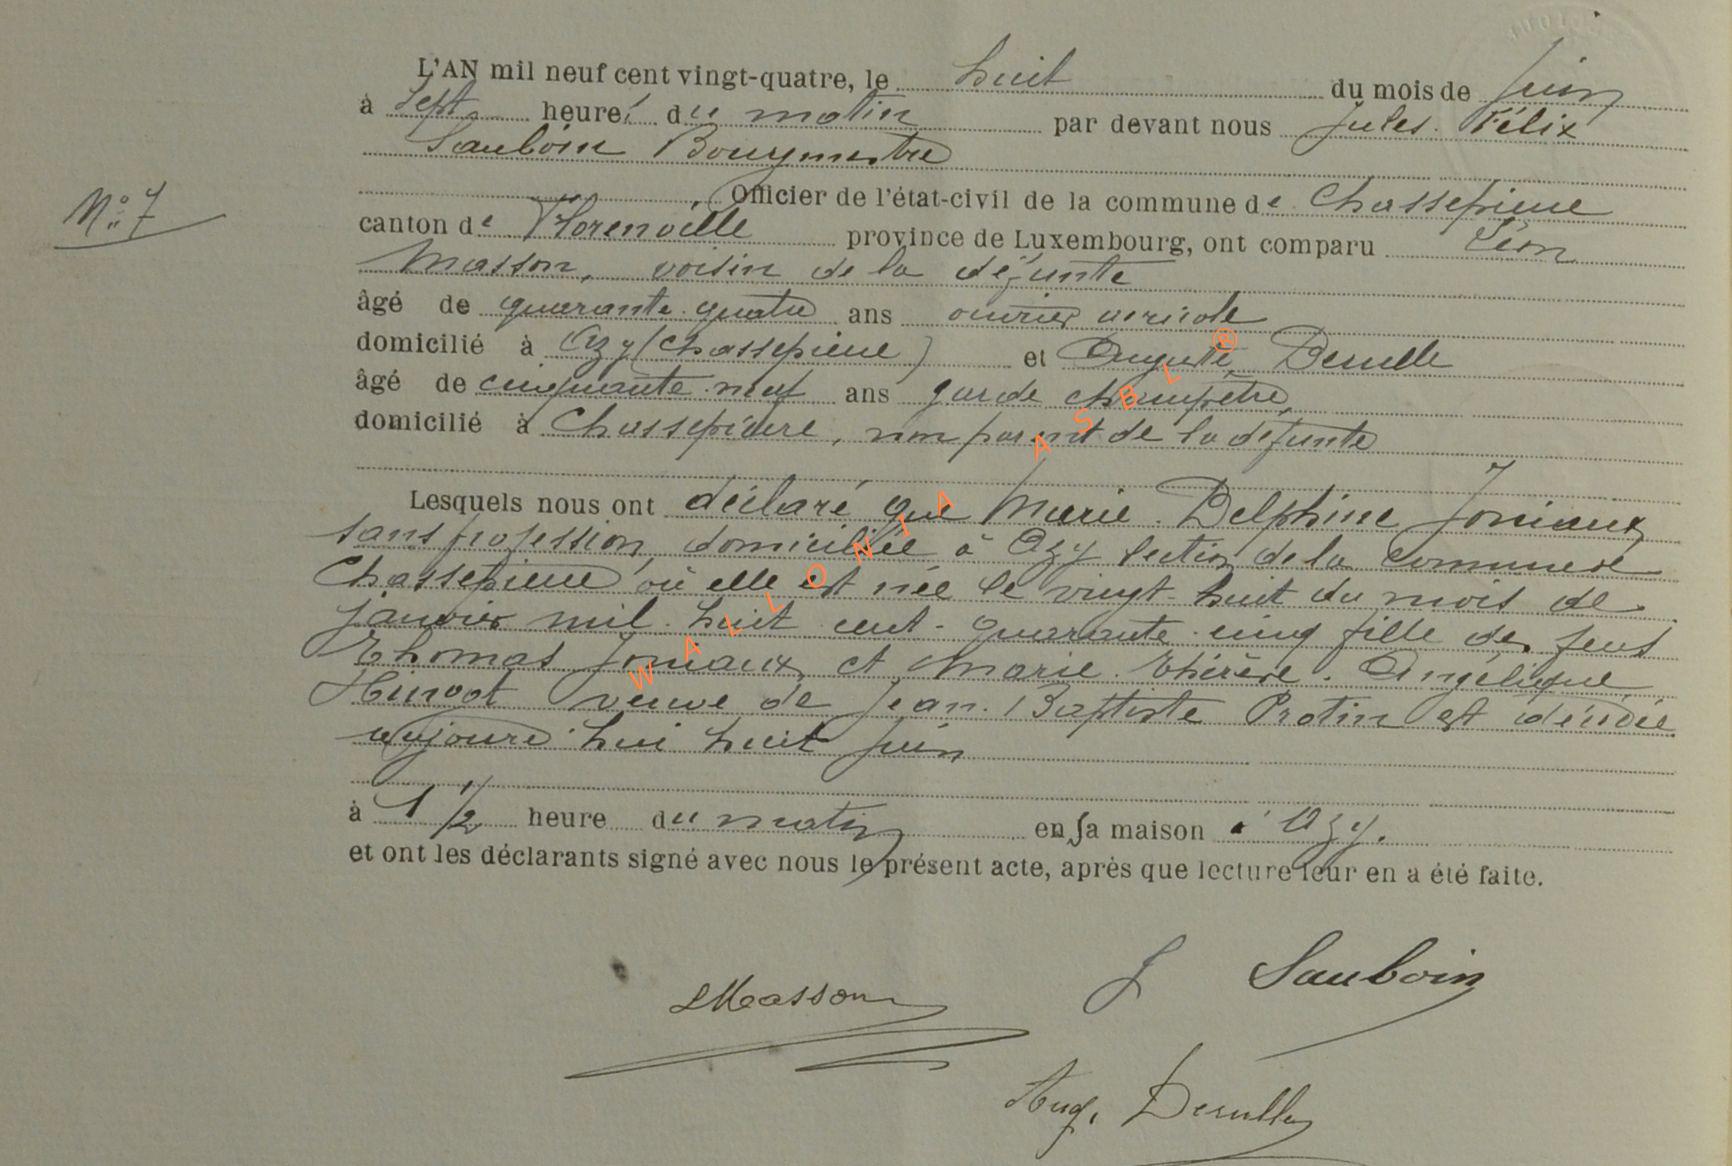 L'AN mil neuf cent vingt-quatre, le huit du mois de Juin
à Sept heures du matin par devant nous Jules. Félix
Sauboin Bourgmestre
Nº 7
, Officier de l'état-civil de la commune de Chassepierre
canton de Florenville province de Luxembourg, ont comparu Léon
Masson, voisin de la défunte
âgé de quarante-quatre ans ouvrier agricole
domicilié à Azy (Chassepierre) et Auguste Derulle
âgé de cinquante-neuf ans garde champêtre,
domicilié à Chassepierre, non parent de la défunte
Lesquels nous ont déclaré que Marie-Delphine Joniaux
sans profession, domiciliée à Azy section de la commune de
Chassepierre où elle est née le vingt-huit du mois de
janvier mil-huit cent-quarante-cinq fille de feus
Thomas Joniaux et Marie-Thérèse-Angélique
veuve de Jean-Baptiste Protin est décédée
aujourd'hui huit juin
à 1 1/2 heure du matin en sa maison à Azy.
et ont les déclarants signé avec nous le présent acte, après que lecture leur en a été faite.
LMasson
J Sauboin
Aug. Derulle
WALLONIA ASBL ®